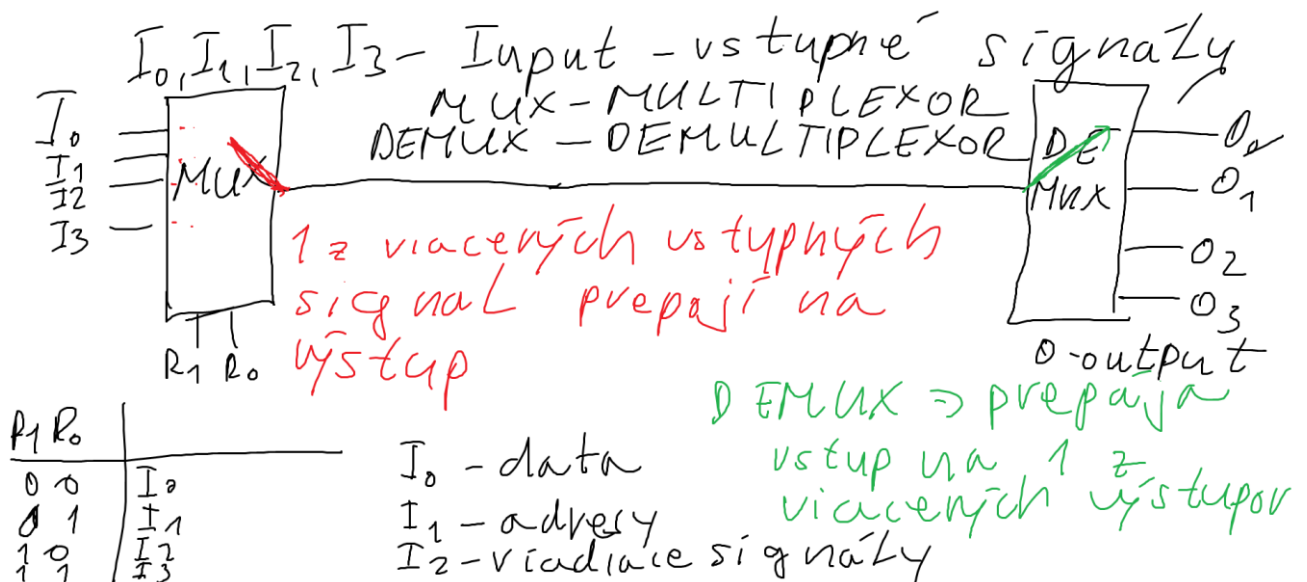 I0, I1, I2, I3 - Input - vstupné signály
MUX - MULTIPLEXOR
DEMUX - DEMULTIPLEXOR
I0
I1
I2
I3
MUX
R1 R0
DE
MUX
O0
O1
O2
O3
O-output
1 z viacerých vstypných
signal prepají na
výstup
DEMUX => prepája
vstup na 1 z
viacerých výstupov
R1 R0
0 0 I0
0 1 I1
1 0 I2
1 1 I3
I0 - data
I1 - adresy
I2 - riadiace signály